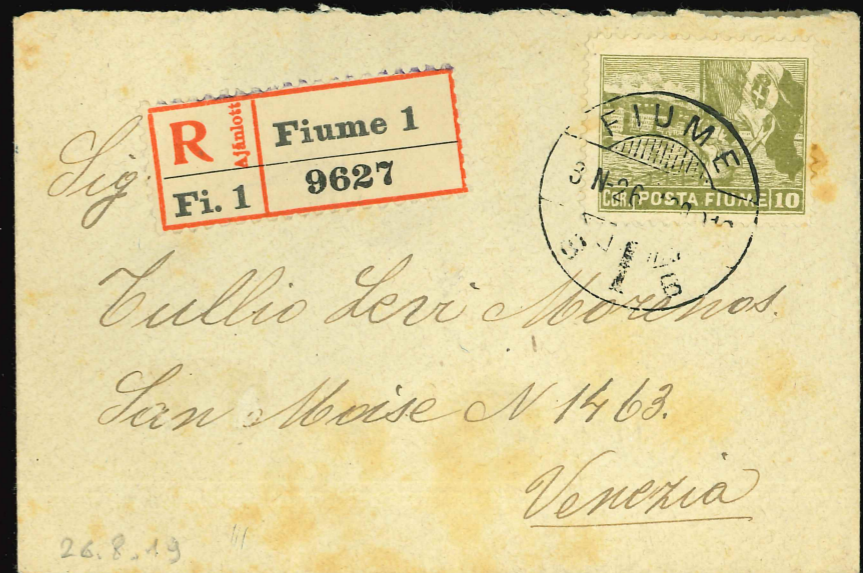 R Ajánlott Fiume 1
Fi. 1 9627
FIUME
COR. POSTA FIUME 10
Sig.
Tullio Levi Morenos.
San Moise N 1463.
Venezia
26.8.19